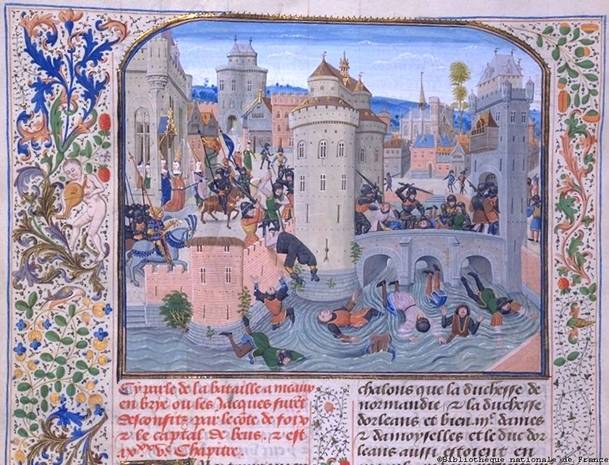 Cy parle de la bataille a meaux
en brye ou les Jacques furēt
desconfits par le cōte de foix
& le captal de beus. & est
Chapitre.
chalons que la duchesse de
normandie & la duchesse
dorleans et bien dames
& damoyselles et le duc dor
leans aussi estoient en
©Bibliothèque nationale de France